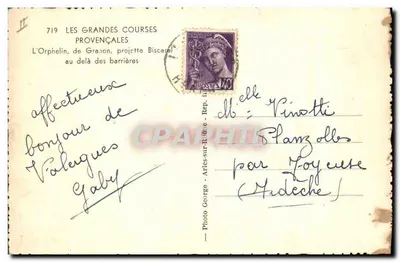 719 LES GRANDES COURSES
PROVENÇALES
L'Orphelin, de Granon, projette Biscarel
au delà des barrières
affectueux
bonjour de
Valergues
Gaby
Photo George - Arles-sur-Rhône - Rep.
Melle Vinotti
Planzolles
par Joyeuse
(Ardèche)
40
CARTEPOSTALE